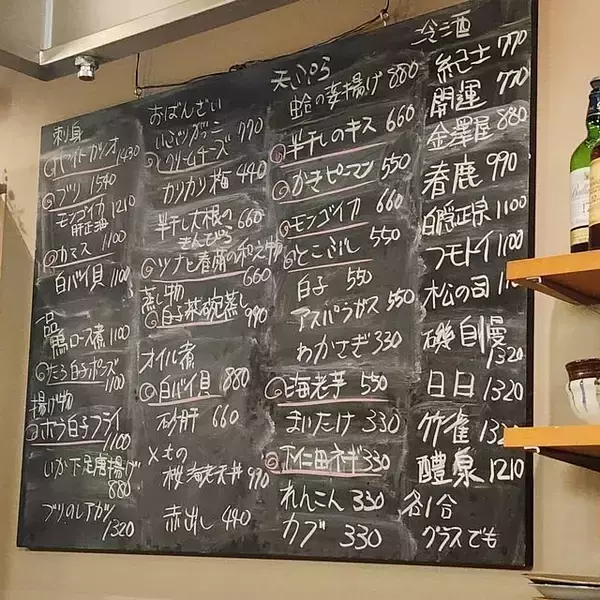 刺身
ホワイトカツオ 1430
ブリ 1540
モンゴイカ
肝正油 1210
カマス 1100
白バイ貝 1100
一品
鴨ロース煮 1100
たら白子ポンズ
1100
揚げ物
ホウ白子フライ
1100
いか下足唐揚げ
880
ブリのレアカツ
1320
おばんざい
いぶりガッコ
クリームチーズ 770
カリカリ梅 440
半干し大根の
きんぴら 660
ツナと春菊の和え物
660
蒸し物
白子茶碗蒸し
990
オイル煮
白バイ貝 880
砂肝 660
〆もの
桜海老天丼 990
赤出し 440
天ぷら
の妾揚げ 880
半干しのキス 660
かきピーマン 550
モンゴイカ 660
とこぶし 550
白子 550
アスパラガス 550
わかさぎ 330
海老芋 550
まいたけ 330
下仁田ネギ 330
れんこん 330
カブ 330
冷酒
紀土 770
開運 770
金澤屋 880
春鹿 990
白隠正宗 1100
フモトイ 1100
松の司
磯自慢
1320
日日 1320
竹雀
醴泉 1210
各1合
グラスでも